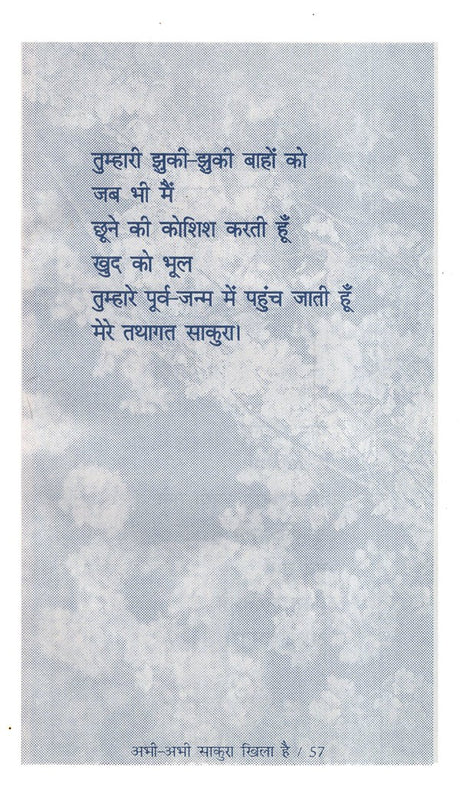 तुम्हारी झुकी-झुकी बाहों को
जब भी मैं
छूने की कोशिश करती हूँ
खुद को भूल
तुम्हारे पूर्व-जन्म में पहुंच जाती हूँ
मेरे तथागत साकुरा।
अभी-अभी साकुरा खिला है / 57